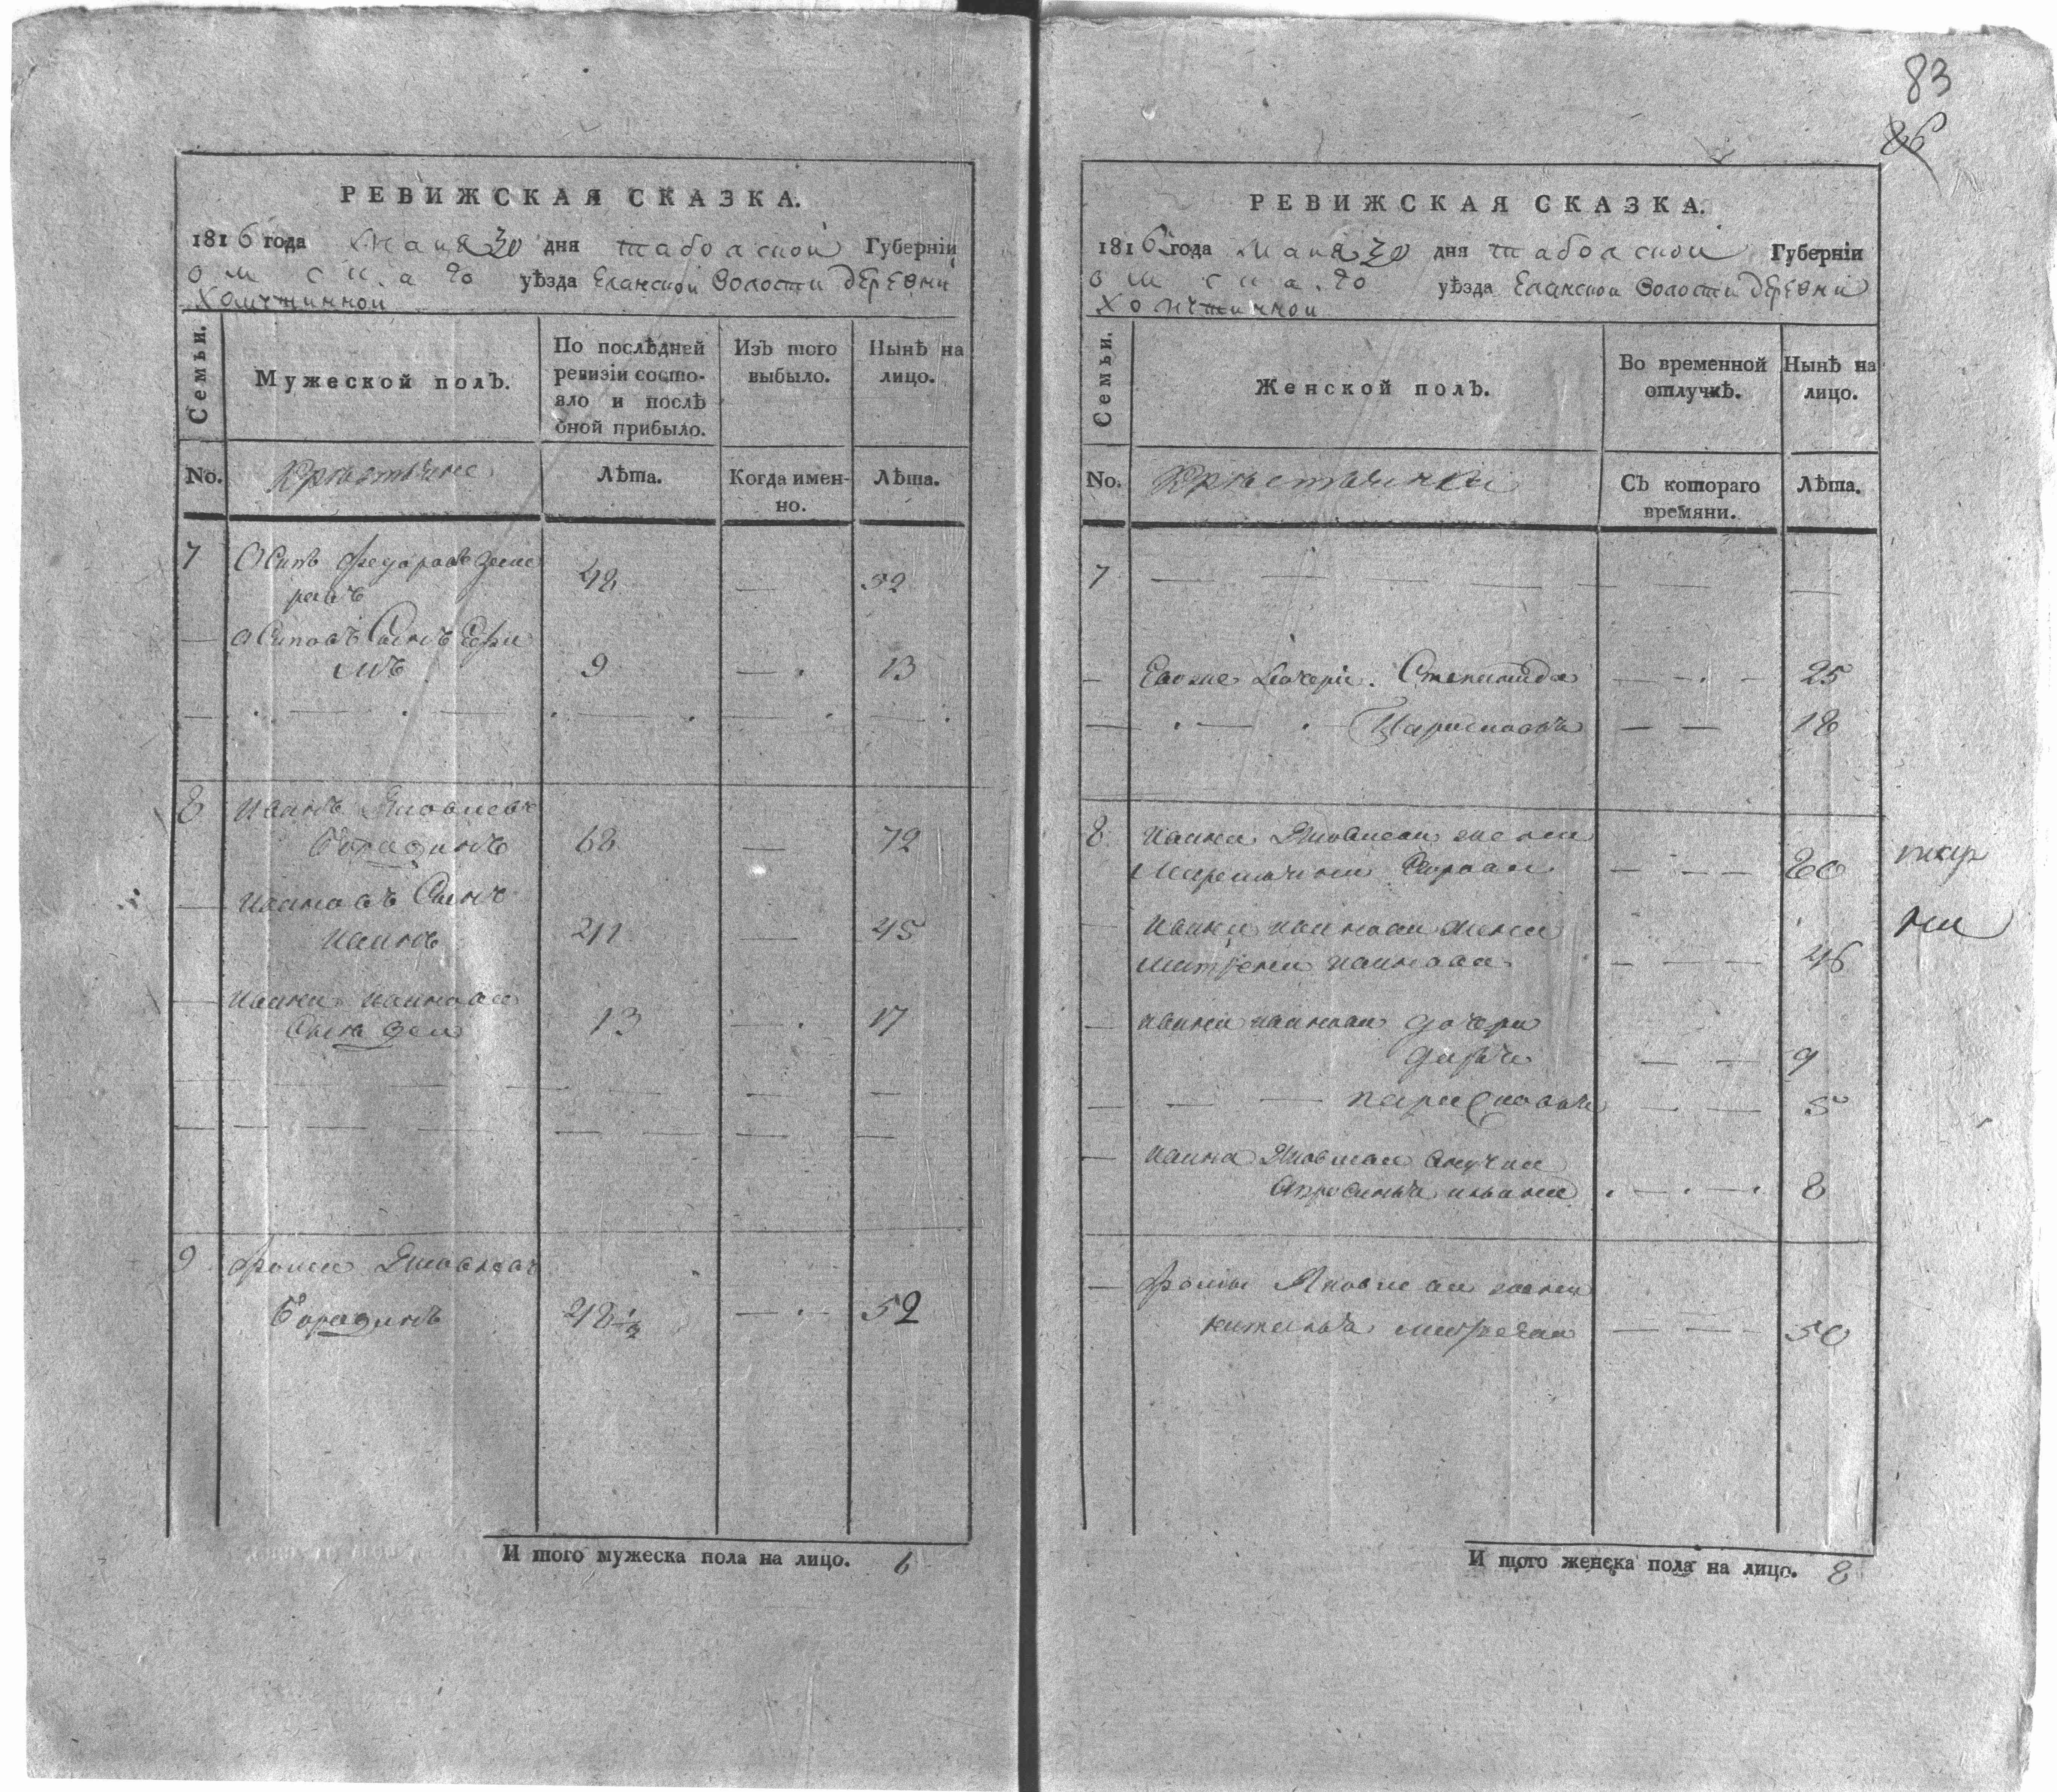 83
86
РЕВИЖСКАЯ СКАЗКА.
1816 года Маия 30 дня таболской Губерніи
омскаго уѣзда Еланской волости деревни
Семьи.
Мужеской полъ.
По послѣдней
ревизіи состо-
яло и послѣ
оной прибыло.
Изъ того
выбыло.
Нынѣ на
лицо.
No.
Крестьяне
Лѣта.
Когда имен-
но.
Лѣта.
7 Осипъ Федоровъ
48 — 52
— Осиповъ Сынъ Ефи
мъ 9 — 13
8 Иванъ Яковлевъ
Бородинъ 68 — 72
— Ивановъ Сынъ
Иванъ 41 — 45
— Ивана Иванова
Сынъ 13 — 17
9 Фома Яковлевъ
Бородинъ 48 — 52
И того мужеска пола на лицо. 6
РЕВИЖСКАЯ СКАЗКА.
1816 года Маия 30 дня таболской Губерніи
омскаго уѣзда Еланской волости деревни
Семьи.
Женской полъ.
Во временной
отлучкѣ.
Нынѣ на
лицо.
No.
Крестьянки
Съ котораго
времяни.
Лѣта.
7 — — — — — —
— Евоже дочери Степанида — — 25
— Парасковья — — 18
8 Ивана Яковлева жена
— — 60
— Ивана Иванова жена
Матрена Иванова — — 46
— Ивана Иванова дочери
Дарья — — 9
— — — Парасковья — — 5
— Ивана Яковлева внучка
Апросинья — — 8
— Фомы Яковлева жена
Наталья — — 50
И того женска пола на лицо. 8